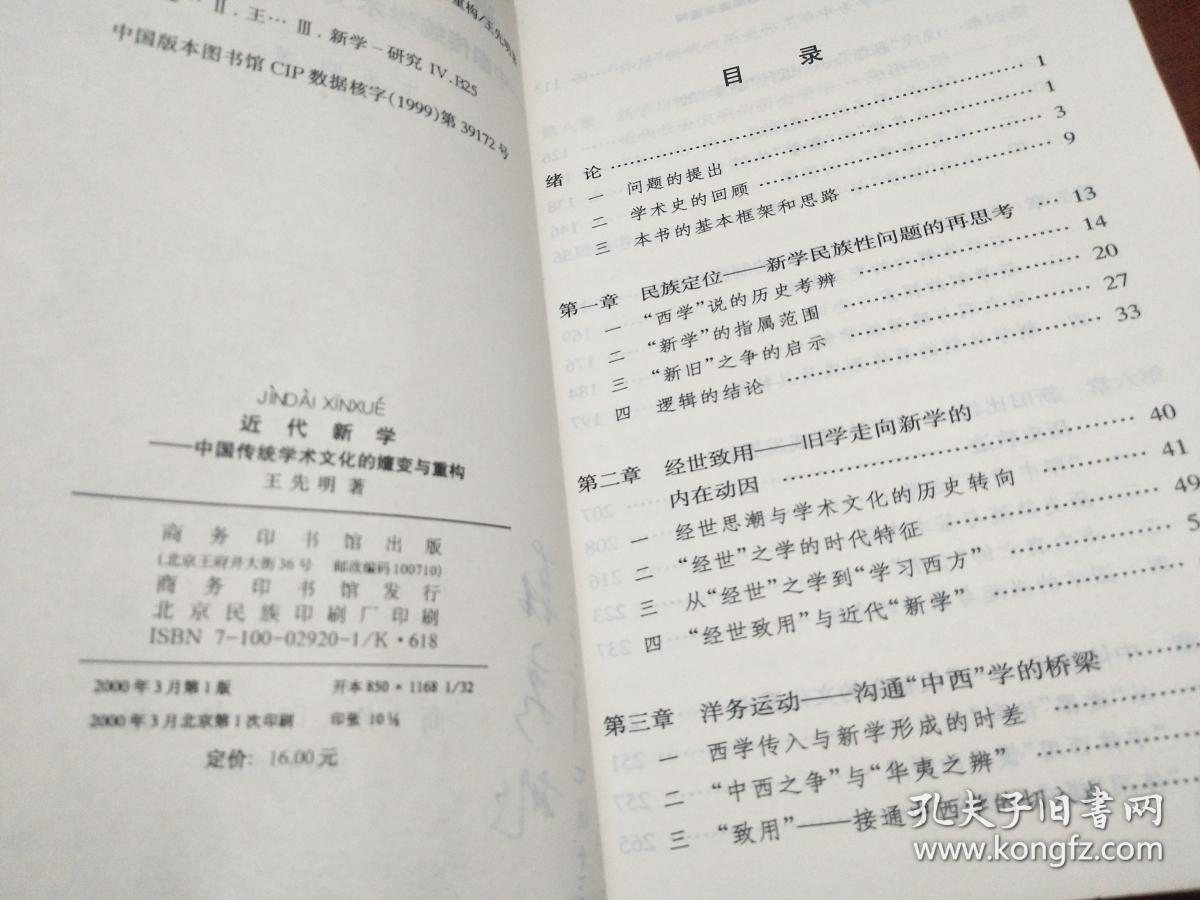 重构/王先明著
Ⅱ.王… Ⅲ.新学－研究 Ⅳ.B25
中国版本图书馆CIP数据核字(1999)第39172号
JÌNDÀI XĪNXUÉ
近代新学
——中国传统学术文化的嬗变与重构
王先明著
商务印书馆出版
(北京王府井大街36号 邮政编码100710)
商务印书馆发行
北京民族印刷厂印刷
ISBN 7-100-02920-1/K·618
2000年3月第1版 开本850×1168 1/32
2000年3月北京第1次印刷 印张 10 1/8
定价：16.00元
目 录
绪 论 …… 1
一 问题的提出 …… 1
二 学术史的回顾 …… 3
三 本书的基本框架和思路 …… 9
第一章 民族定位——新学民族性问题的再思考 …… 13
一 “西学”说的历史考辨 …… 14
二 “新学”的指属范围 …… 20
三 “新旧”之争的启示 …… 27
四 逻辑的结论 …… 33
第二章 经世致用——旧学走向新学的
内在动因 …… 40
一 经世思潮与学术文化的历史转向 …… 41
二 “经世”之学的时代特征 …… 49
三 从“经世”之学到“学习西方” …… 5
四 “经世致用”与近代“新学” ……
第三章 洋务运动——沟通“中西”学的桥梁 ……
一 西学传入与新学形成的时差 ……
二 “中西之争”与“华夷之辨” ……
三 “致用”——接通中西学的切入点 ……
孔夫子旧书网
www.kongfz.com